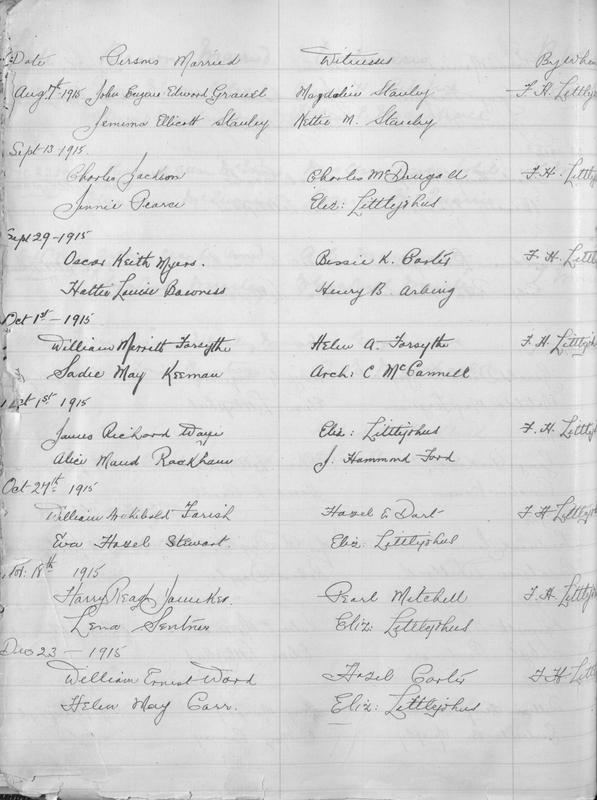 Date Persons Married Witnesses By Whom
Aug 7th 1915 John Eugene Edward Gravell Magdalin Stanley F. H. Littlej
Jemima Ellicott Stanley Nettie M. Stanley
Sept 13 1915.
Charles Jackson Charles McDougall F. H. Littlej
Jennie Pearce Eliz: Littlejohns
Sept 29 - 1915
Oscar Keith Myers. Bessie K. F. H. Littl
Hattie Louise Henry B.
Oct 1st - 1915
William Merritt Forsythe Helen A. Forsythe F. H. Littlej
Sadie May Keenan Arch: C McCannell
Oct 1st 1915
James Richard Eliz: Littlejohns F. H. Littlej
Alice Maud Rackham J. Hammond Ford
Oct 27th 1915
William Archibald Farish Hazel E Dart F H Littlej
Eva Hazel Stewart. Eliz: Littlejohns
18th 1915
Harry Pearl Mitchell F. H. Littlej
Lena Eliz: Littlejohns
Dec 23 - 1915
William Ernest Ward Hazel F H Littlej
Helen May Carr. Eliz: Littlejohns